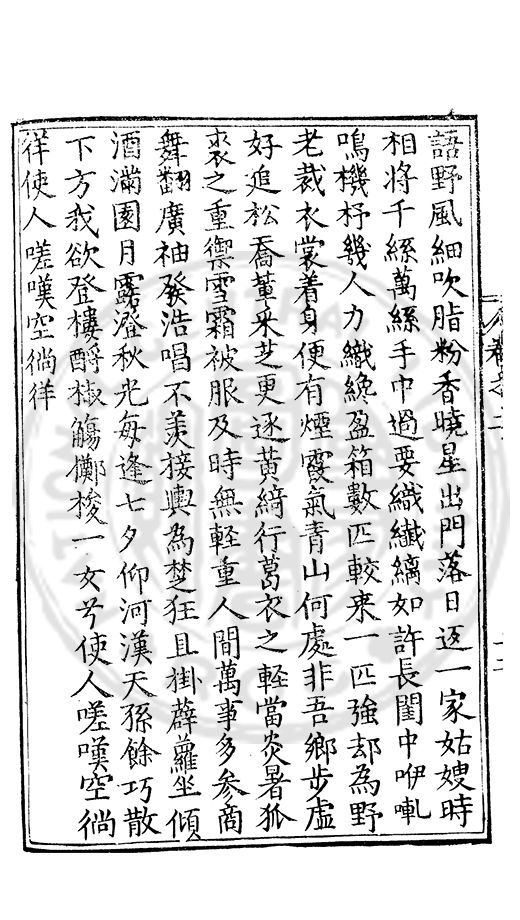 語野風細吹脂粉香曉星出門落日返一家姑嫂時
相將千絲萬絲手中過要織纎縞如許長閨中咿軋
鳴機杼幾人力織纔盈箱數匹較來一匹強却為野
老裁衣裳着身便有煙霞氣青山何處非吾鄉步虛
好追松喬輩采芝更逐黃綺行葛衣之軽當炎暑狐
裘之重禦雪霜被服及時無軽重人間萬事多參商
舞翻廣袖發浩唱不羡接輿為楚狂且掛薜蘿坐傾
酒滿園月露澄秋光每逢七夕仰河漢天孫餘巧散
下方我欲登樓酹椒觴擲梭一女兮使人嗟嘆空徜
徉使人嗟嘆空徜徉